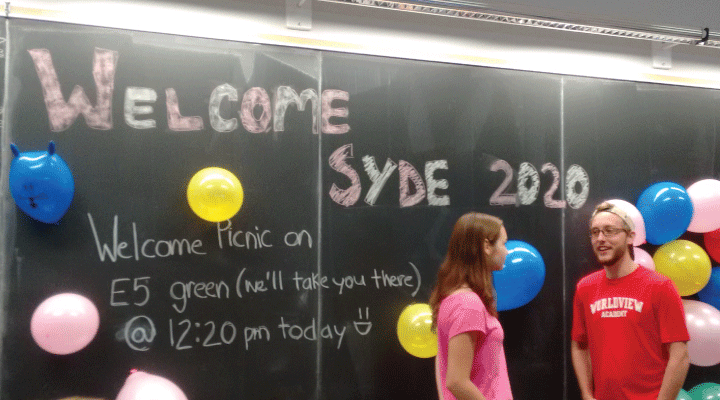 WELCOME
SYDE 2020
Welcome Picnic on
E5 green (we'll take you there)
@ 12:20 pm today
WORLDVIEW
ACADEMY